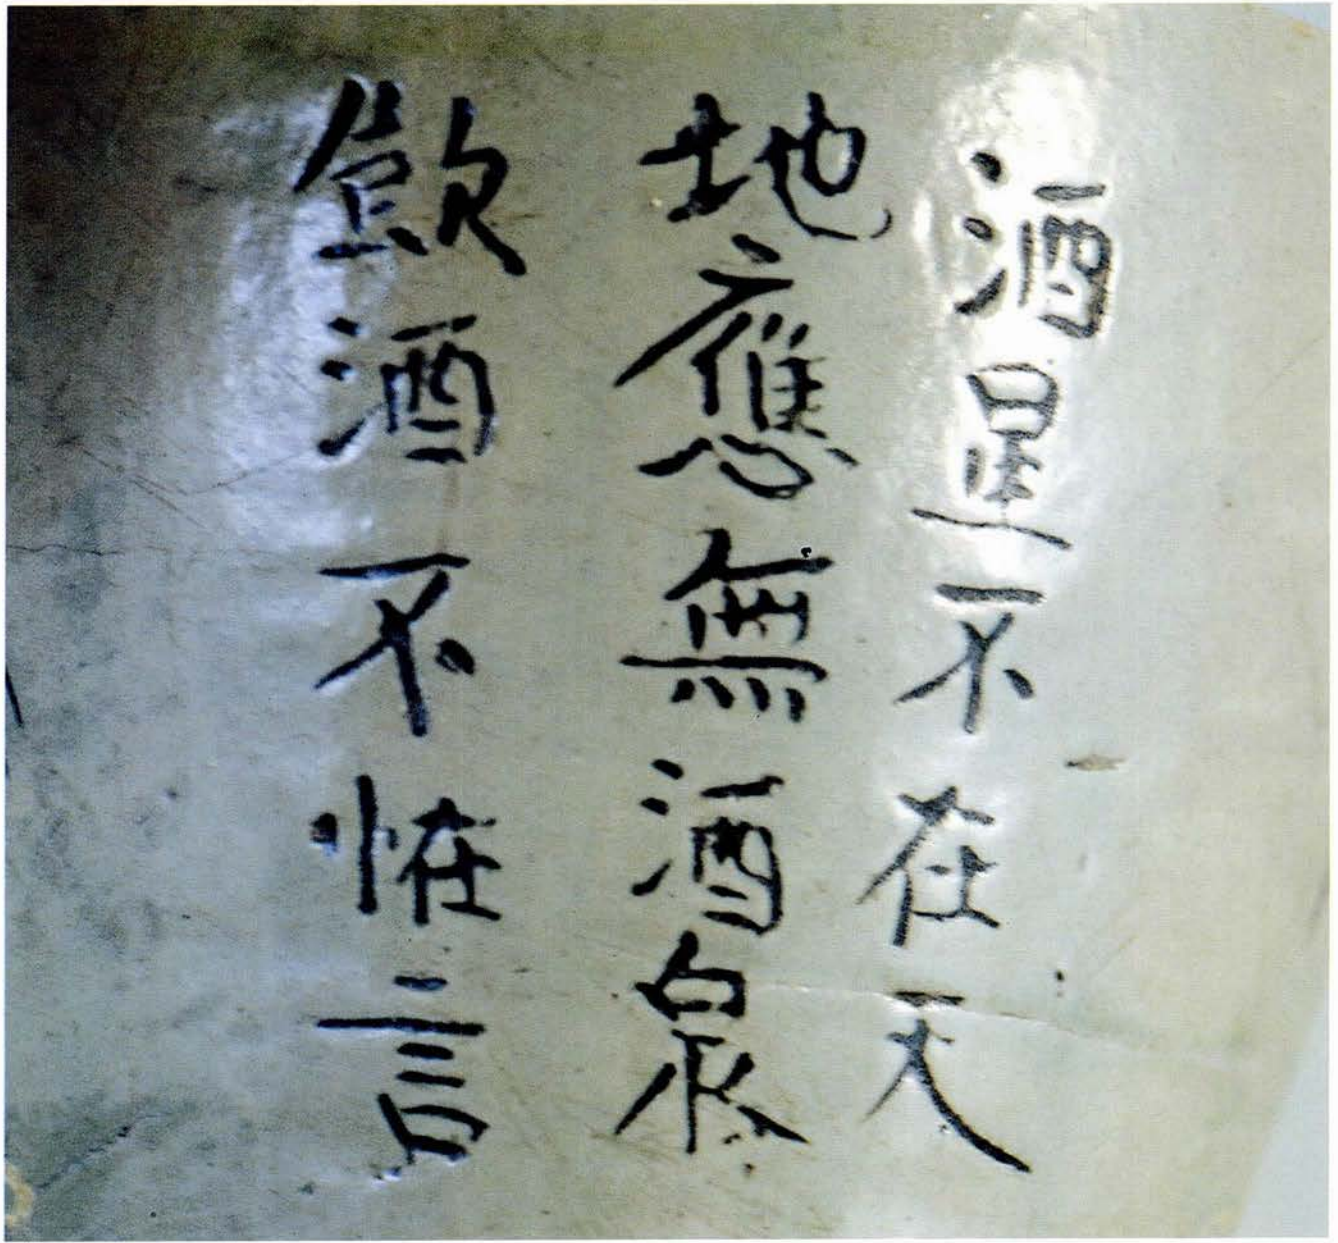 酒星不在天
地應無酒泉
飲酒不恠言